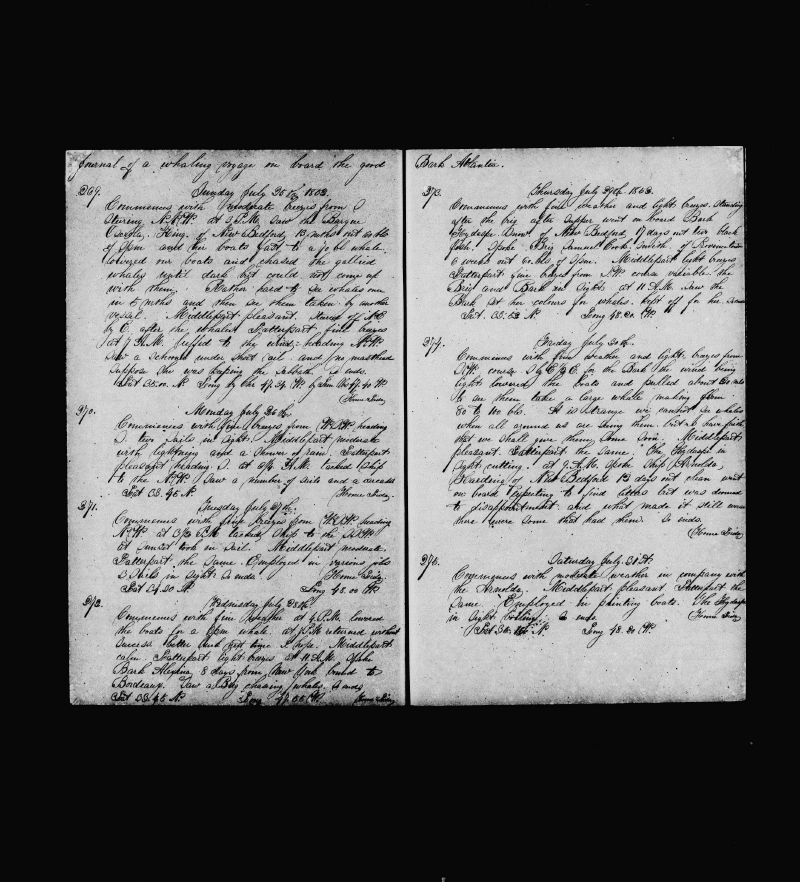 Journal of a whaling voyage on board the good
269. Sunday July 25th 1863.
Commences with moderate breezes from S
steering N.W. at 3 P.M. saw the Barque
Osceola, King, of New Bedford, 13 mths out
of spm and her boats fast to a jobl whale.
lowered our boats and chased the gallied
whales until dark but could not come up
with them. Rather hard to see whales one
in 5 mths and then see them taken by another
vessel. Middlepart pleasant. steered
by E. after the whales. Latterpart fine breezes
at 7 A.M. luffed to the wind heading
saw a schooner under short sail and no masthead
suppose she was keeping the Sabbath so ends.
Lat 35.00 N Long by
Home Sick
270. Monday July 26th.
Commences with fine breezes from heading
S. two sails in sight. Middlepart moderate
with lightning and a shower of rain. Latterpart
pleasant heading S. at A.M. tacked ship
to the N.W. Saw a number of sails and
Lat 33.45 N
271. Tuesday July 27th.
Commences with fine breezes from heading
N.W. at P.M. tacked ship to the
at sunset took in sail. Middlepart moderate.
Latterpart the same. Employed in various jobs
3 Sails in sight. So ends.
Lat 34.20 N Long 48.00 W
272. Wednesday July 28th.
Commences with fine weather at 4 P.M. lowered
the boats for a Spm whale. at returned without
success better luck next time I hope. Middlepart
calm. Latterpart light breezes at 11 A.M. spoke
Bark 8 days from New York bound to
Bordeaux. Saw a Brig chasing whales. So ends
Lat 33.45 N Long
Bark Atlantic.
273. Thursday July 29th 1863.
Commences with fine weather and light breezes. standing
after the brig after supper went on board Bark
Hydaspe of New Bedford, 17 days out two black
fish. Spoke Brig Samuel Cook, Smith, of Provincetown
a week out of Spm. Middlepart light breezes
Latterpart fine breezes from course variable. the
Brig and Bark in sight. at 11 A.M. saw the
Bark set her colours for whales. kept off for her.
Lat. 35.53 N. Long 48.20 W.
274. Friday 30th.
Commences with fine weather and light breezes from
course for the Bark the wind being
light lowered the boats and pulled about
to see them take a large whale making them
80 to 100 bls. It is strange we cannot see whales
when all around us are seeing them. but I have faith
that we shall give them some soon. Middlepart
pleasant. Latterpart the same. The Hydaspe in
sight cutting. at 9 A.M. spoke Ship Arnolda,
Harding of New Bedford 13 days out clean went
on board expecting to find letters but was doomed
to disappointment and what made it still worse
there were some that had them. So ends
275. Saturday July 31st.
Commences with moderate weather in company with
the Arnolda. Middlepart pleasant. Latterpart the
same. Employed in painting boats. The Hydaspe
in sight boiling. So ends
Lat N Long 48.20 W.